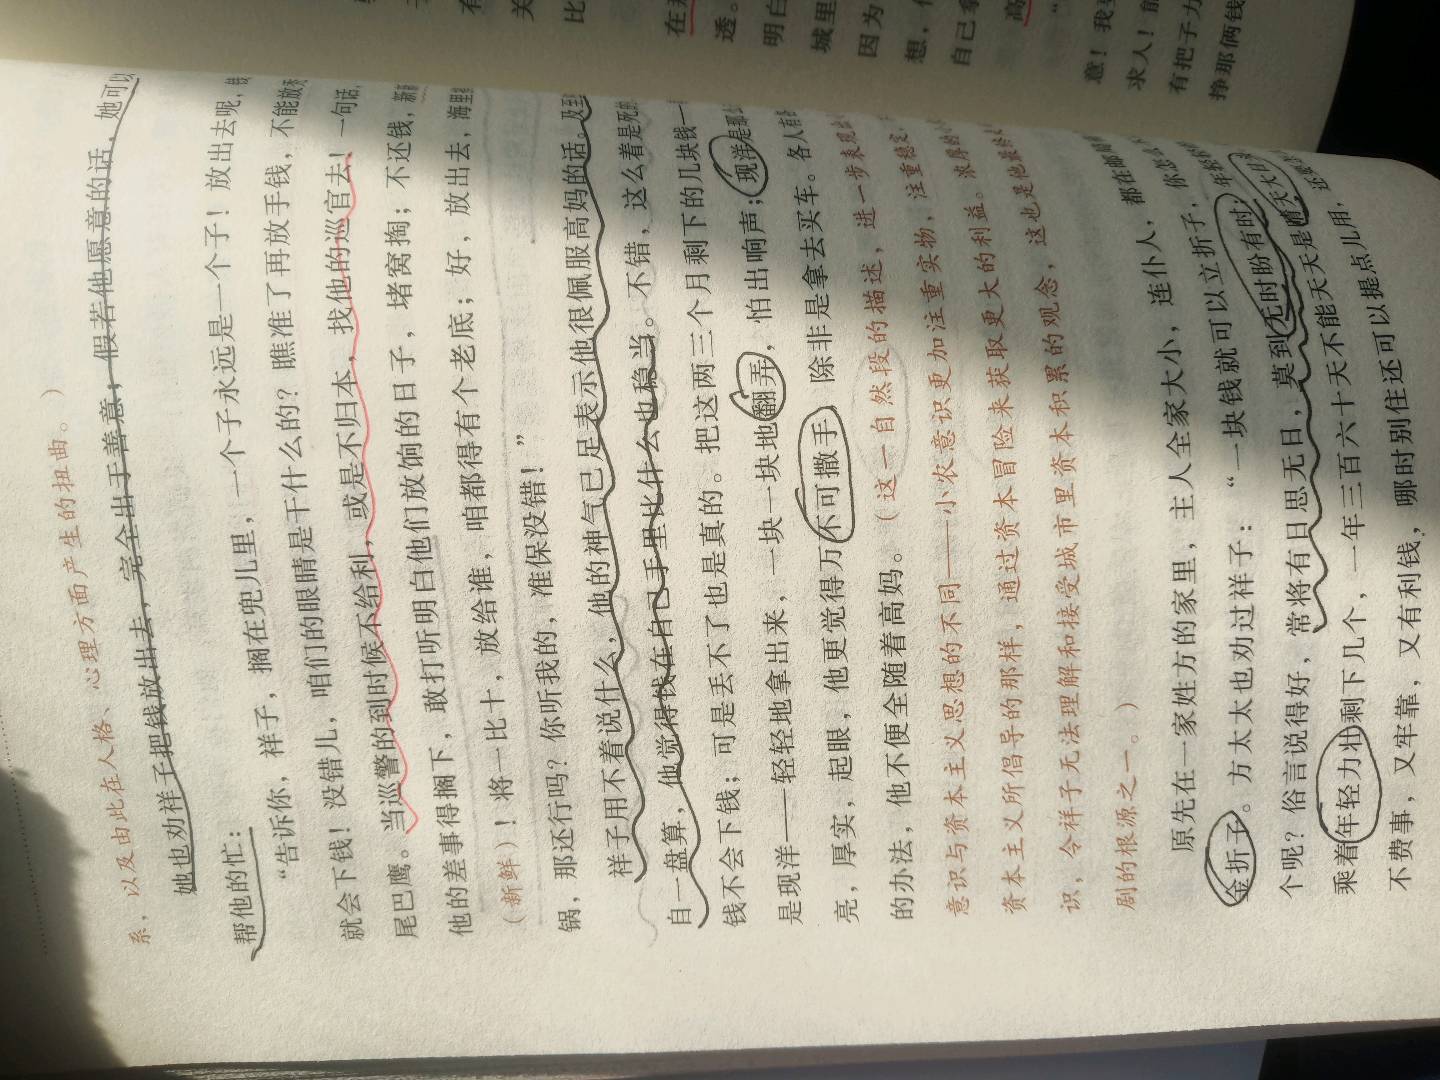 系，以及由此在人格、心理方面产生的扭曲。）
她也劝祥子把钱放出去，完全出于善意，假若他愿意的话，她可以
帮他的忙：
“告诉你，祥子，搁在兜儿里，一个子永远是一个子！放出去呢，钱
就会下钱！没错儿，咱们的眼睛是干什么的？瞧准了再放手钱，不能放秃
尾巴鹰。当巡警的到时候不给利，或是不归本，找他的巡官去！一句话，
他的差事得搁下，敢！打听明白他们放饷的日子，堵窝掏；不还钱，新新
（新鲜）！将一比十，放给谁，咱都得有个老底；好，放出去，海里摸
锅，那还行吗？你听我的，准保没错！”
祥子用不着说什么，他的神气已足表示他很佩服高妈的话。及至
自一盘算，他觉得钱在自己手里比什么也稳当。不错，这么着是死的
钱不会下钱；可是丢不了也是真的。把这两三个月剩下的几块钱一
是现洋——轻轻地拿出来，一块一块地翻弄，怕出响声；现洋是那么
亮，厚实，起眼，他更觉得万不可撒手，除非是拿去买车。各人有各
的办法，他不便全随着高妈。（这一自然段的描述，进一步表现
意识与资本主义思想的不同——小农意识更加注重实物，注重稳定
资本主义所倡导的那样，通过资本冒险来获取更大的利益。浓厚的小
识，令祥子无法理解和接受城市里资本积累的观念，这也是他最终
剧的根源之一。）
原先在一家姓方的家里，主人全家大小，连仆人，都在邮局
金折子。方太太也劝过祥子：“一块钱就可以立折子，你怎么
个呢？俗言说得好，常将有日思无日，莫到无时盼有时；年轻轻
乘着年轻力壮剩下几个，一年三百六十天不能天天是晴天大日
不费事，又牢靠，又有利钱，哪时别住还可以提点儿用，
关
比
在
透。
明白
城里
因为
想，
自己拿
高
意！我
求人！
有把子力
挣那俩钱